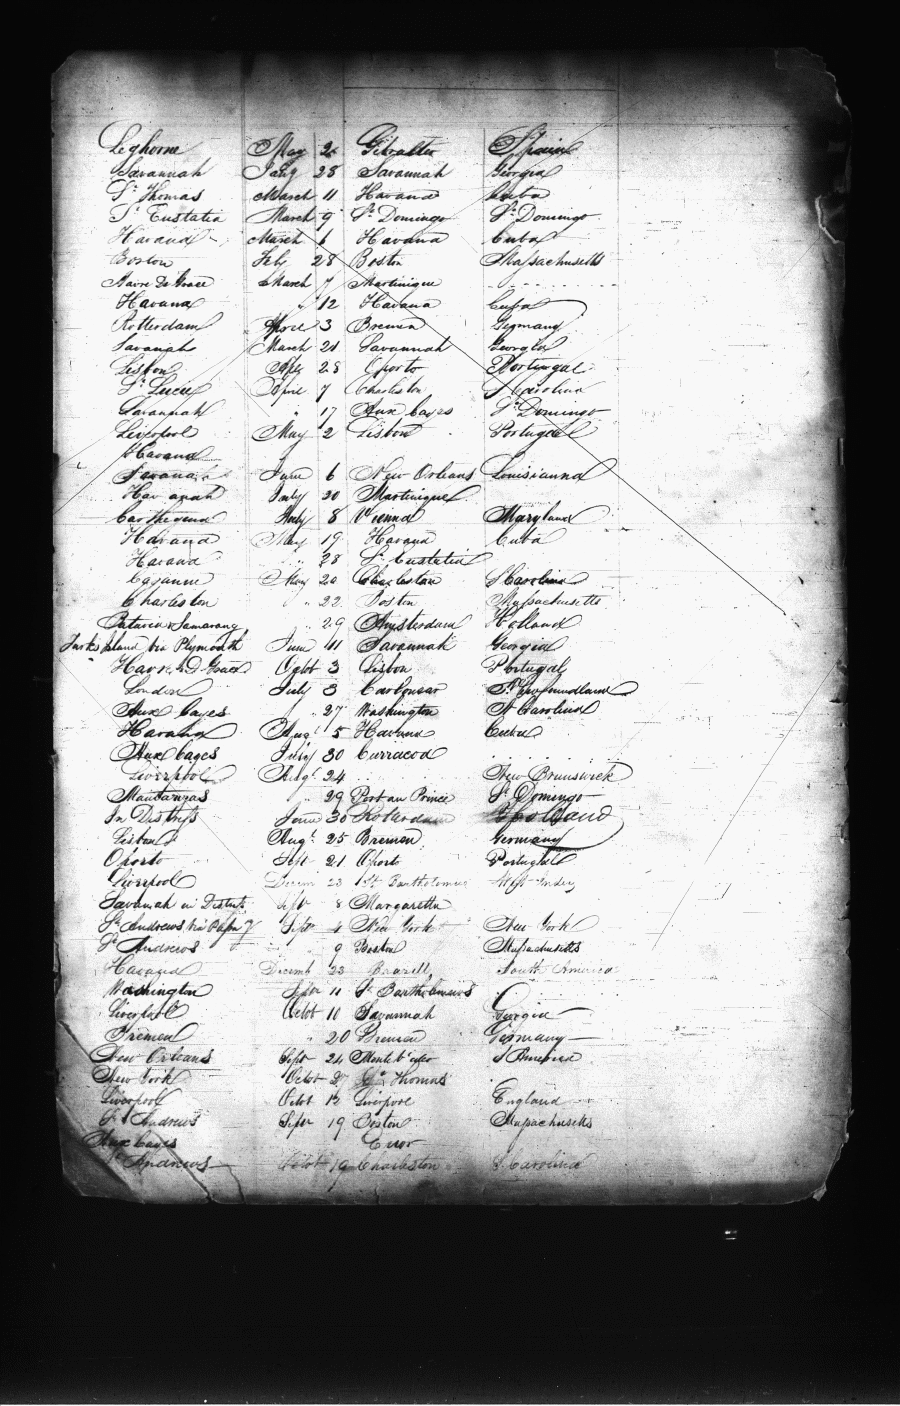 Leghorne May 2 Gibralter Spain
Savannah Jany 28 Savannah Georgia
St Thomas March 11 Havana Cuba
St Eustatia March 9 St Domingo St Domingo
Havana March 6 Havana Cuba
Boston Feby 28 Boston Massachusetts
Havre De Grace March 7 Martinique
Havana " 12 Havana Cuba
Rotterdam April 3 Bremen Germany
Savanah March 21 Savannah Georgia
Lisbon 28 Oporto Portugal
St Lucie April 7 Charleston S Carolina
Savannah " 17 Aux Cayes St Domingo
Liverpool May 2 Lisbon Portugal
Havana
Savanah June 6 New Orleans Louisianna
Havanah July 20 Martinique
Carthegena 8 Vienna Maryland
Havana May 19 Havana Cuba
Havana " 28 St Eustatia
Cayanne May 20 Charleston S Carolina
Charleston " 22 Boston Massachusetts
Batavia & Samarang " 29 Amsterdam Holland
Turks Island via Plymouth June 11 Savannah Georgia
Havre D Grace Octob 3 Lisbon Portugal
London July 3 Carbonear Newfoundland
Aux Cayes " 27 Washington N Carolina
Havana Augt 5 Havana Cuba
Aux Cayes July 30 Curracoa
Liverpool Augt 24 New Brunswick
Mantanzas " 29 Port au Prince St Domingo
In Distress June 30 Rotterdam Holland
Lisbon Augt 25 Bremen Germany
Oporto Sept 21 Oporto Portugal
Liverpool Decem 23 St Bartholomews West Indes
Savanah in Distress Sept 8 Margaretta
St Andrews via 4 New York New York
St Andrews " 9 Boston Massachusetts
Havana Decemb 22 Brazill South America
Washington Sepr 11 St Bartholomews
Liverpool Octob 10 Savannah Georgia
Bremen " 20 Bremen Germany
New Orleans Sept 24 Monte Video S America
New York Octob St Thomas
Liverpool Octob 13 Liverpool England
St Andrews Sepr 19 Boston Massachusetts
Aux Cayes Error
St Andrews Octob 19 Charleston S Carolina